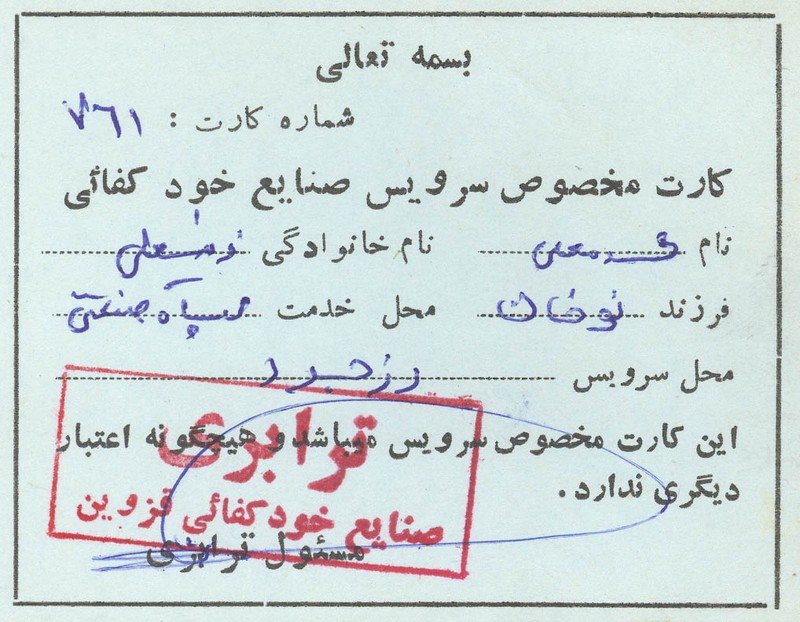 بسمه تعالی
شماره کارت : ۷۶۱
کارت مخصوص سرویس صنایع خود کفائی
نام نام خانوادگی
فرزند محل خدمت سپاه صنعتی
محل سرویس
این کارت مخصوص سرویس میباشد و هیچگونه اعتبار
دیگری ندارد.
مسئول ترابری
ترابری
صنایع خود کفائی قزوین